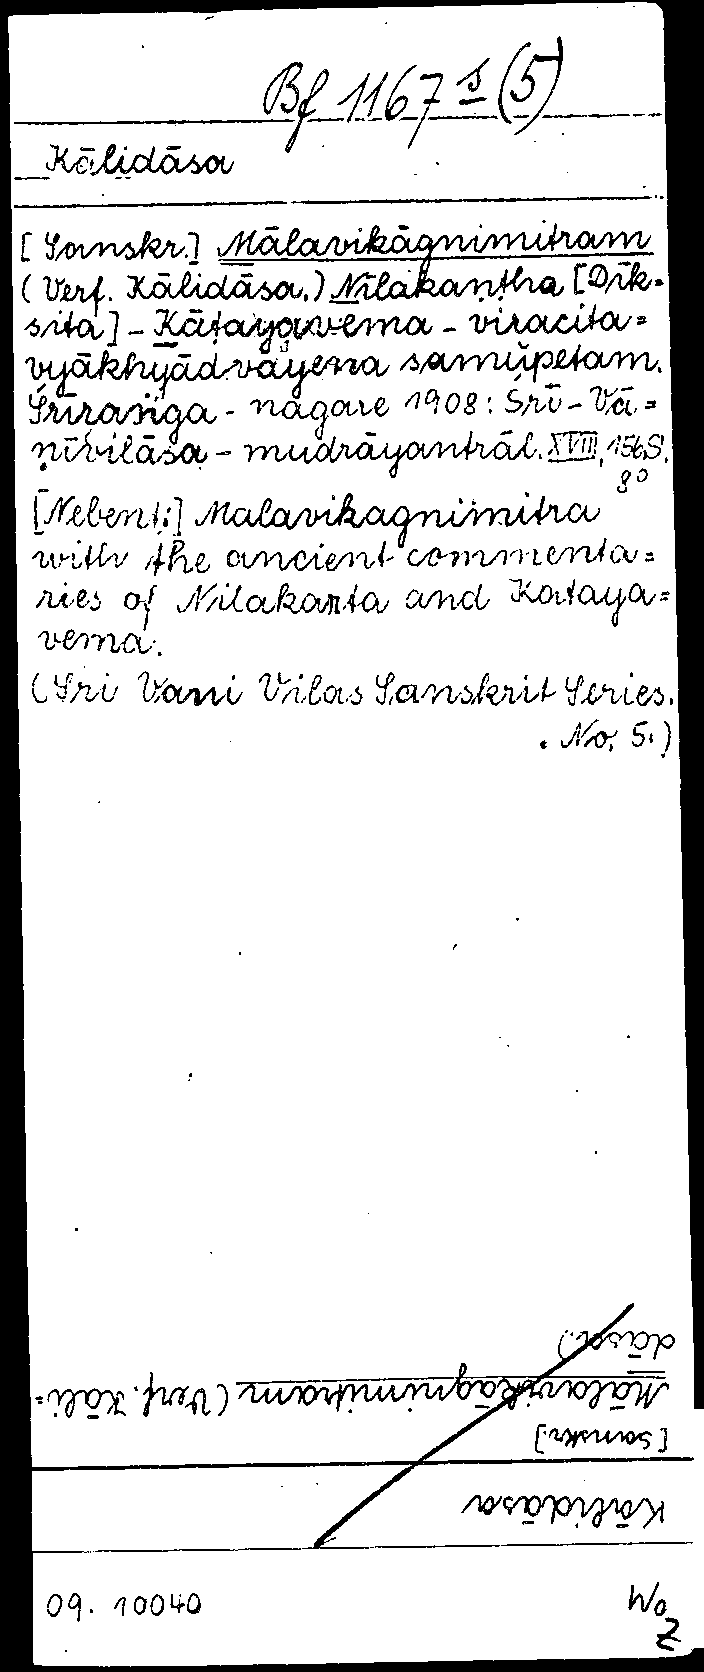 Bf 1167 s (5)
Kālidāsa
[Sanskr.] Mālavikāgnimitram
(Verf. Kālidāsa.) Nīlakaṇṭha [Dīk=
ṣita] - Kāṭayavema - viracita=
vyākhyādvayena samupetam.
Śrīraṅga - nagare 1908: Śrī-Vā=
ṇīvilāsa - mudrāyantrāl. XVIII, 156 S.
8°
[Nebent.:] Malavikagnimitra
with the ancient commenta=
ries of Nilakanta and Kataya=
vema.
(Sri Vani Vilas Sanskrit Series.
No. 5.)
Kālidāsa
[Sanskr.]
Mālavikāgnimitram (Verf. Kāli=
dāsa.)
09. 10040